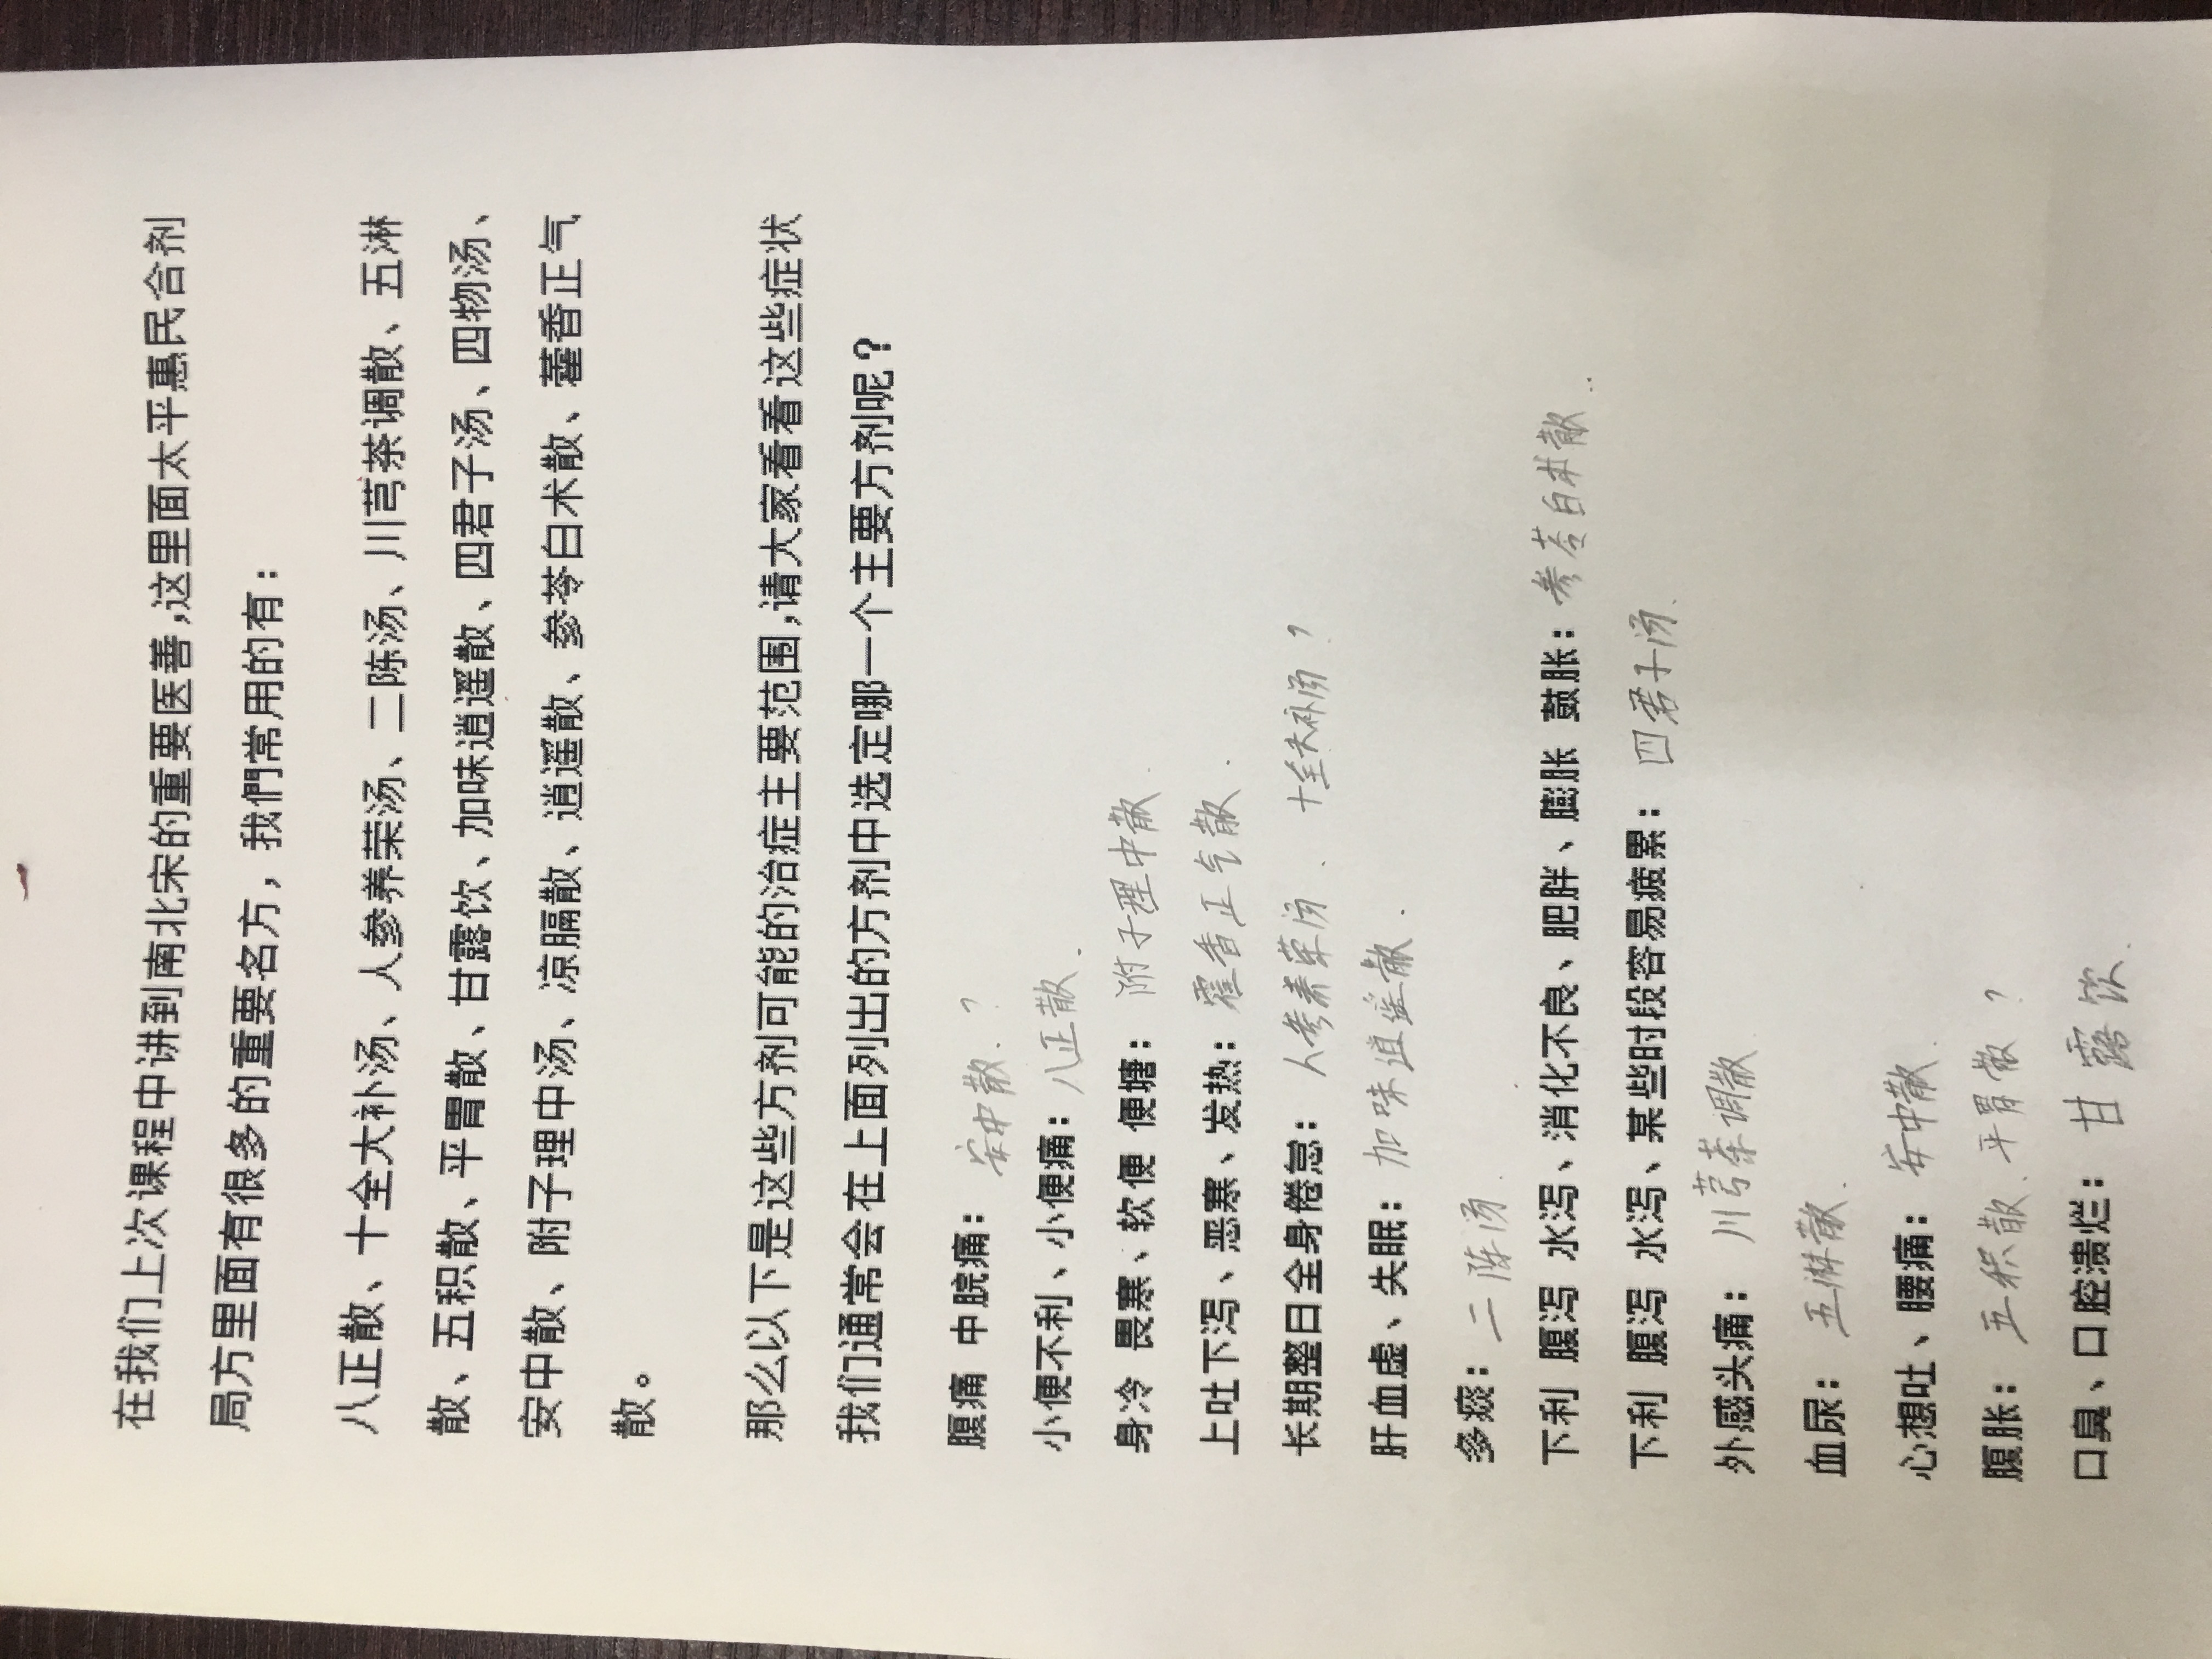 在我们上次课程中讲到南北宋的重要医善,这里面太平惠民合剂
局方里面有很多的重要名方，我們常用的有：
八正散、十全大补汤、人参养荣汤、二陈汤、川芎茶调散、五淋
散、五积散、平胃散、甘露饮、加味逍遥散、四君子汤、四物汤、
安中散、附子理中汤、凉膈散、逍遥散、参苓白术散、藿香正气
散。
那么以下是这些方剂可能的治症主要范围,请大家看看这些症状
我们通常会在上面列出的方剂中选定哪一个主要方剂呢？
腹痛 中脘痛： 安中散.?
小便不利、小便痛：八正散.
身冷 畏寒、软便 便塘： 附子理中散.
上吐下泻、恶寒、发热： 霍香正气散.
长期整日全身倦怠： 人参养荣汤、十全大补汤?
肝血虚、失眠： 加味逍遥散.
多痰： 二陈汤.
下利 腹泻 水泻、消化不良、肥胖、膨胀 鼓胀： 参苓白术散..
下利 腹泻 水泻、某些时段容易疲累： 四君子汤.
外感头痛： 川芎茶调散
血尿： 五淋散.
心想吐、腰痛： 安中散.
腹胀： 五积散、平胃散?
口臭、口腔溃烂： 甘露饮.